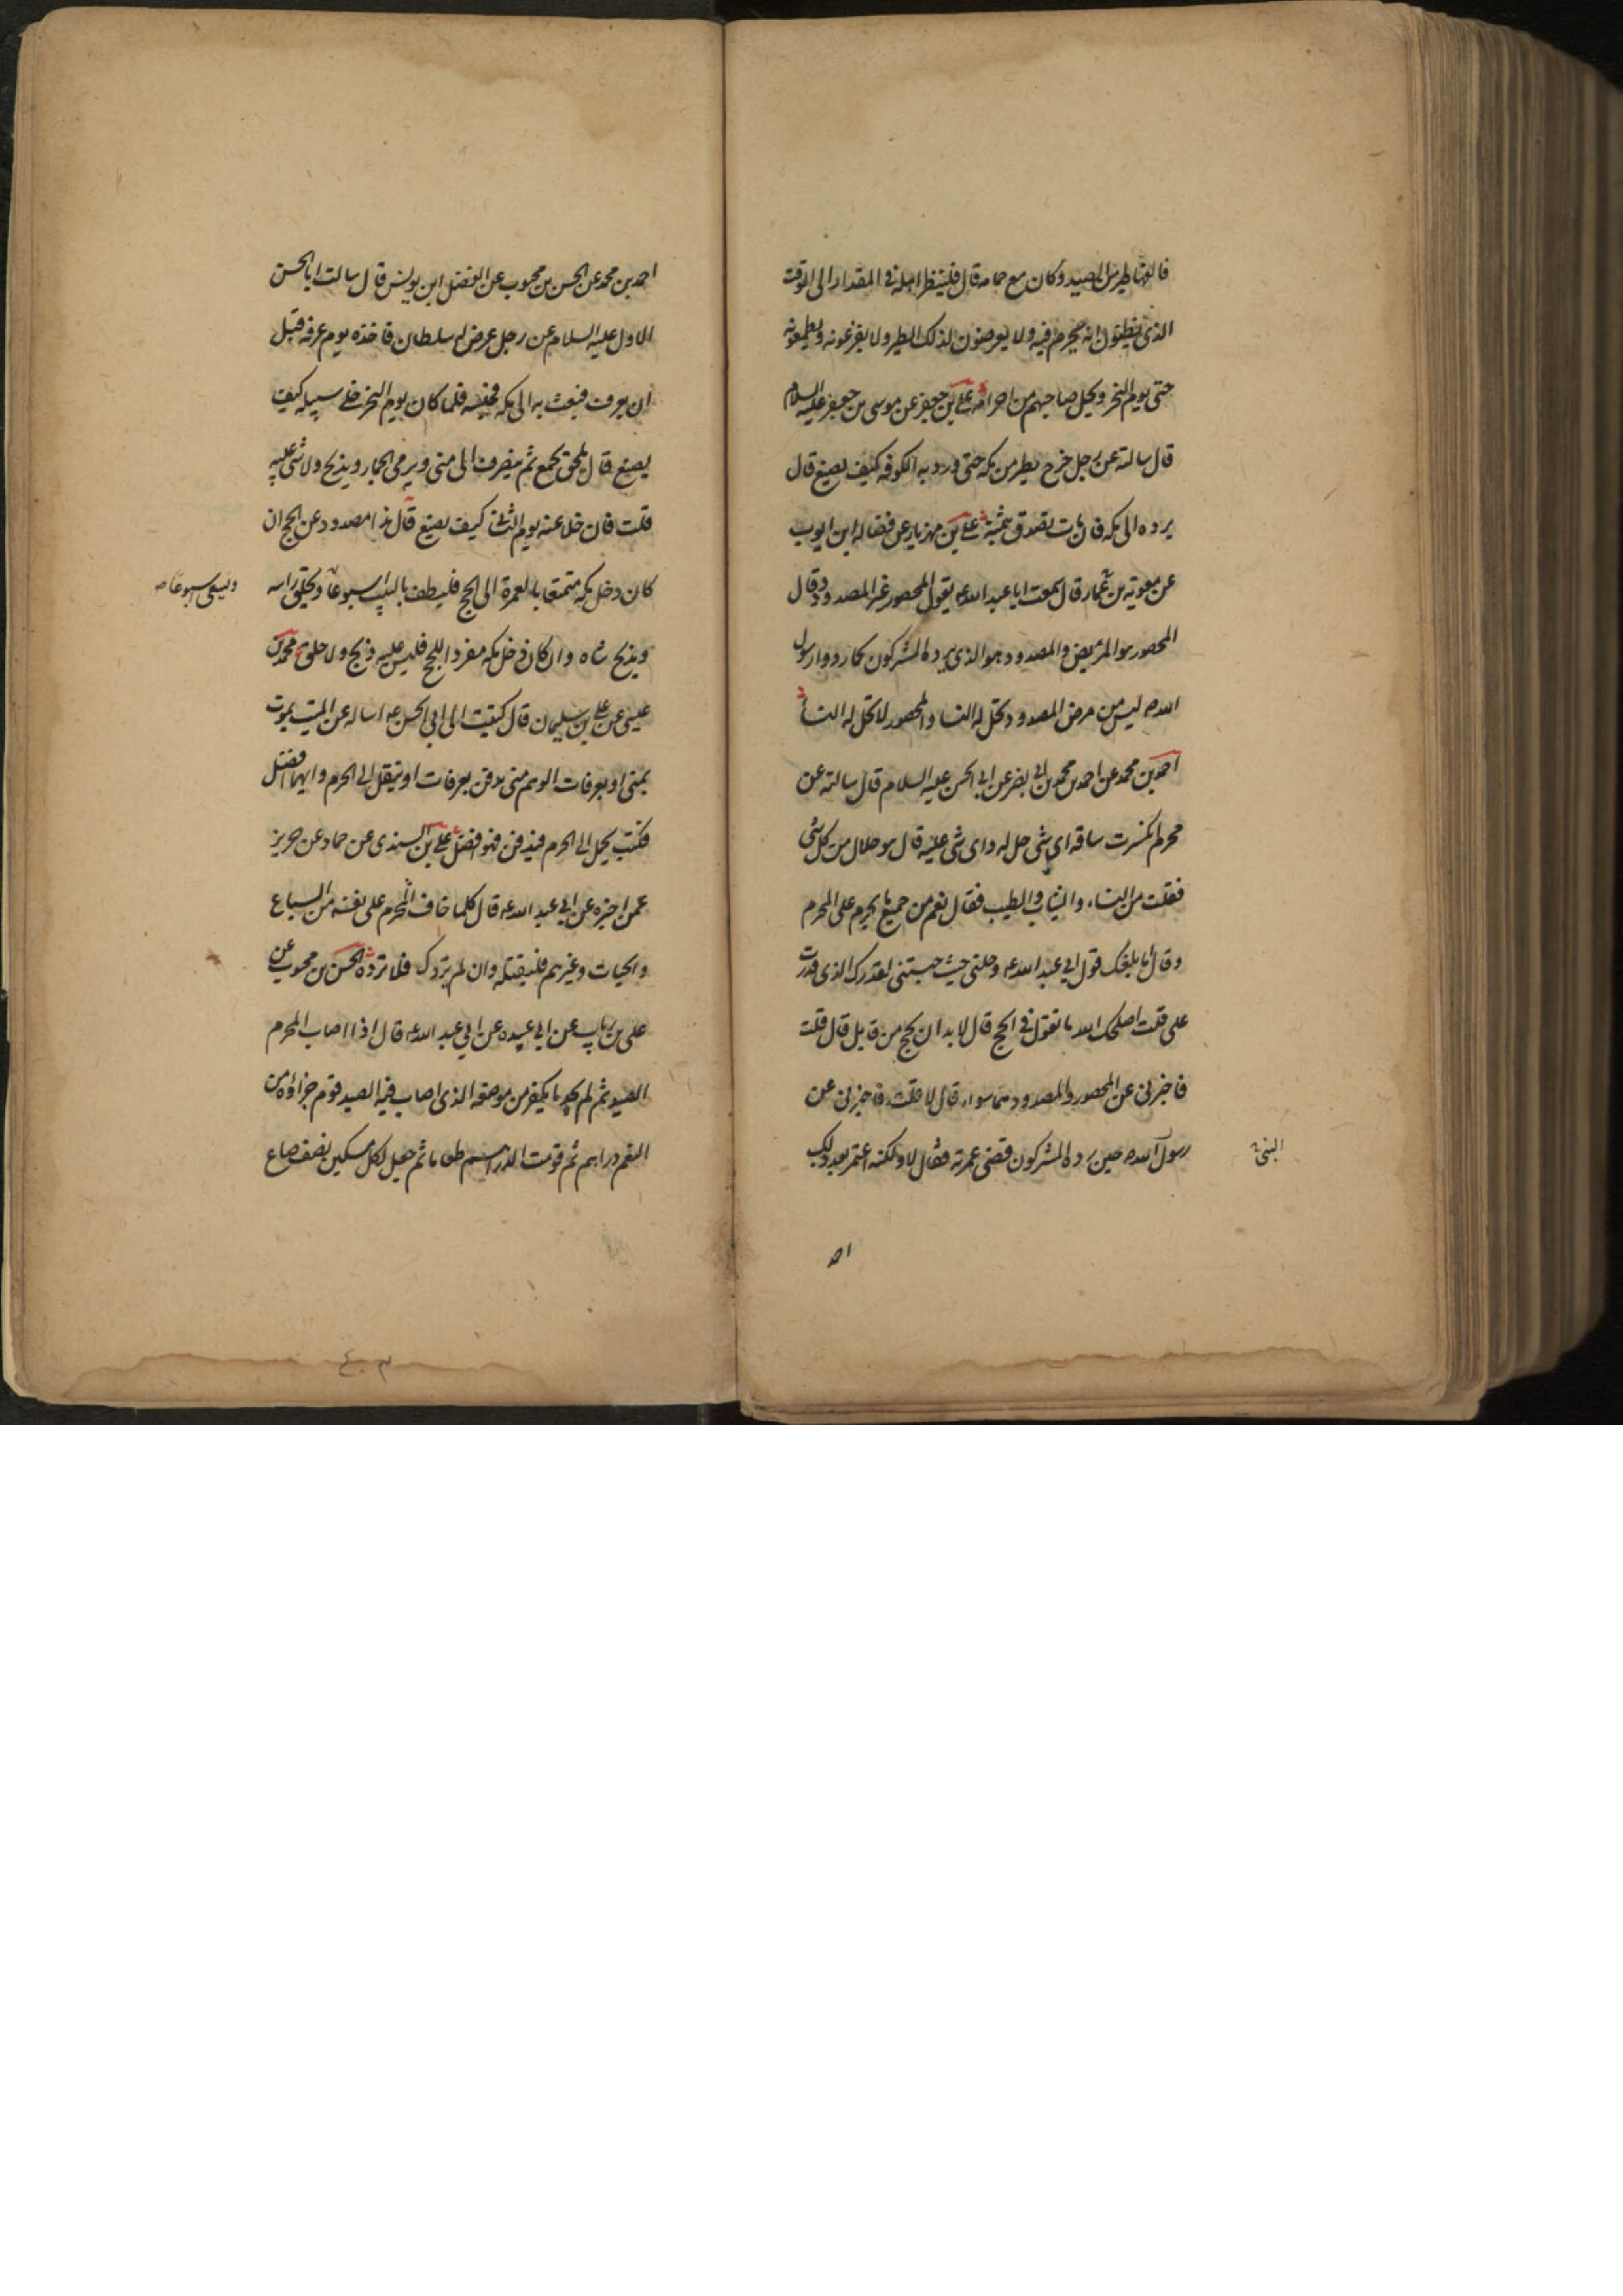 فالفها طير من الصيد وكان مع حمامه قال فلينظر اهله في المقدار الى الوقت
الذي يظنون انه يحرم فيه ولا يعرضون لذلك الطير ولا يفزعونه ويطعمونه
حتى يوم النحر ويحل صاحبهم من احرامه علي بن جعفر عن موسى بن جعفر عليه السلام
قال سالته عن رجل خرج بطير من مكه حتى ورد به الكوفه كيف يصنع قال
يرده الى مكه فان مات تصدق بثمنه علي بن مهزيار عن فضاله ابن ايوب
عن معويه بن عمار قال سمعت ابا عبد الله ع يقول المحصور غير المصدود وقال
المحصور هو المريض والمصدود هو الذي يرده المشركون كما ردوا رسول
الله ص ليس من مرض المصدود تحل له النسا والمحصور لا تحل له النسا
احمد بن محمد عن احمد بن محمد بن ابي نصر عن ابي الحسن عليه السلام قال سالته عن
محرم انكسرت ساقه اي شي حل له واي شي عليه قال هو حلال من كل شي
فقلت من النساء والثياب والطيب فقال نعم من جميع ما يحرم على المحرم
وقال اما بلغك قول ابي عبد الله ع وحلني حيث حبستني لقدرك الذي قدرت
علي قلت اصلحك الله ما تقول في الحج قال لا بد ان يحج من قابل قال قلت
فاخبرني عن المحصور والمصدود هما سواء قال لا قلت فاخبرني عن
رسول الله ص حين رده المشركون قضى عمرته فقال لا ولكنه اعتمر بعد ذلك
احمد بن محمد عن الحسن بن محبوب عن الفضل ابن يونس قال سالت ابا الحسن
الاول عليه السلام عن رجل عرض له سلطان فاخذه يوم عرفه قبل
ان يعرف فبعث به الى مكه فحبسه فلما كان يوم النحر خلى سبيله كيف
يصنع قال يلحق بجمع ثم ينصرف الى منى ويرمي الجمار ويذبح ولا شي عليه
قلت فان خلى عنه يوم الثاني كيف يصنع قال هذا مصدود عن الحج ان
كان دخل مكه متمتعا بالعمرة الى الحج فليطف بالبيت اسبوعا ويحلق راسه
ويسعى اسبوعا صه
ويذبح شاه وان كان دخل مكه مفردا للحج فليس عليه ذبح ولا حلق محمد بن
عيسى عن علي بن سليمان قال كتبت الى ابي الحسن ع اساله عن الميت يموت
بمنى او بعرفات الوهم مني يدفن بعرفات او ينقل الى الحرم وايهما افضل
فكتب يحمل الى الحرم فيدفن فهو افضل علي بن السندي عن حماد عن حريز
عمن اخبره عن ابي عبد الله ع قال كلما خاف المحرم على نفسه من السباع
والحيات وغيرهم فليقتله وان لم يردك فلا ترده الحسن بن محبوب عن
علي بن رياب عن ابي عبيده عن ابي عبد الله ع قال اذا اصاب المحرم
الصيد ثم لم يجد ما يكفر من موضعه الذي اصاب فيه الصيد قوم جزاؤه من
النعم دراهم ثم قومت الدراهم طعاما ثم جعل لكل مسكين نصف صاع
٤٠٣